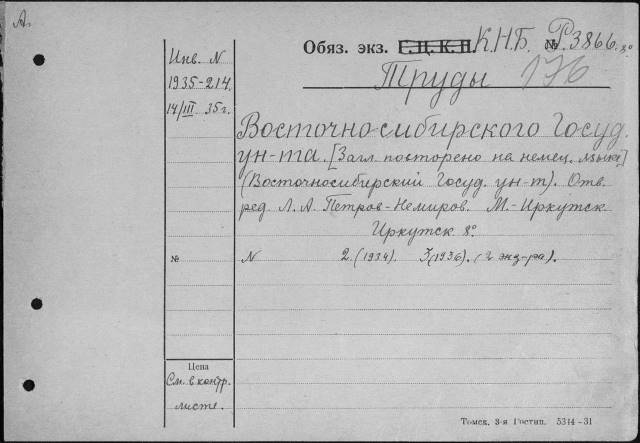 А.
Обяз. экз. Г.Ц.К.П. К.Н.Б. № Р.3866. 8°
Труды 176
Инв. N
1935-214
14/III 35г.
Восточно-сибирского Госуд.
ун-та. [Загл. повторено на немец. языке]
(Восточносибирский Госуд. ун-т). Отв.
ред. Л. А. Петров-Немиров. М.-Иркутск
Иркутск 8°.
№ N 2. (1934). 3 (1936). (2 экз-ра).
Цена
См. в контр.
листе.
Томск, 3-я Гостип. 5314-31